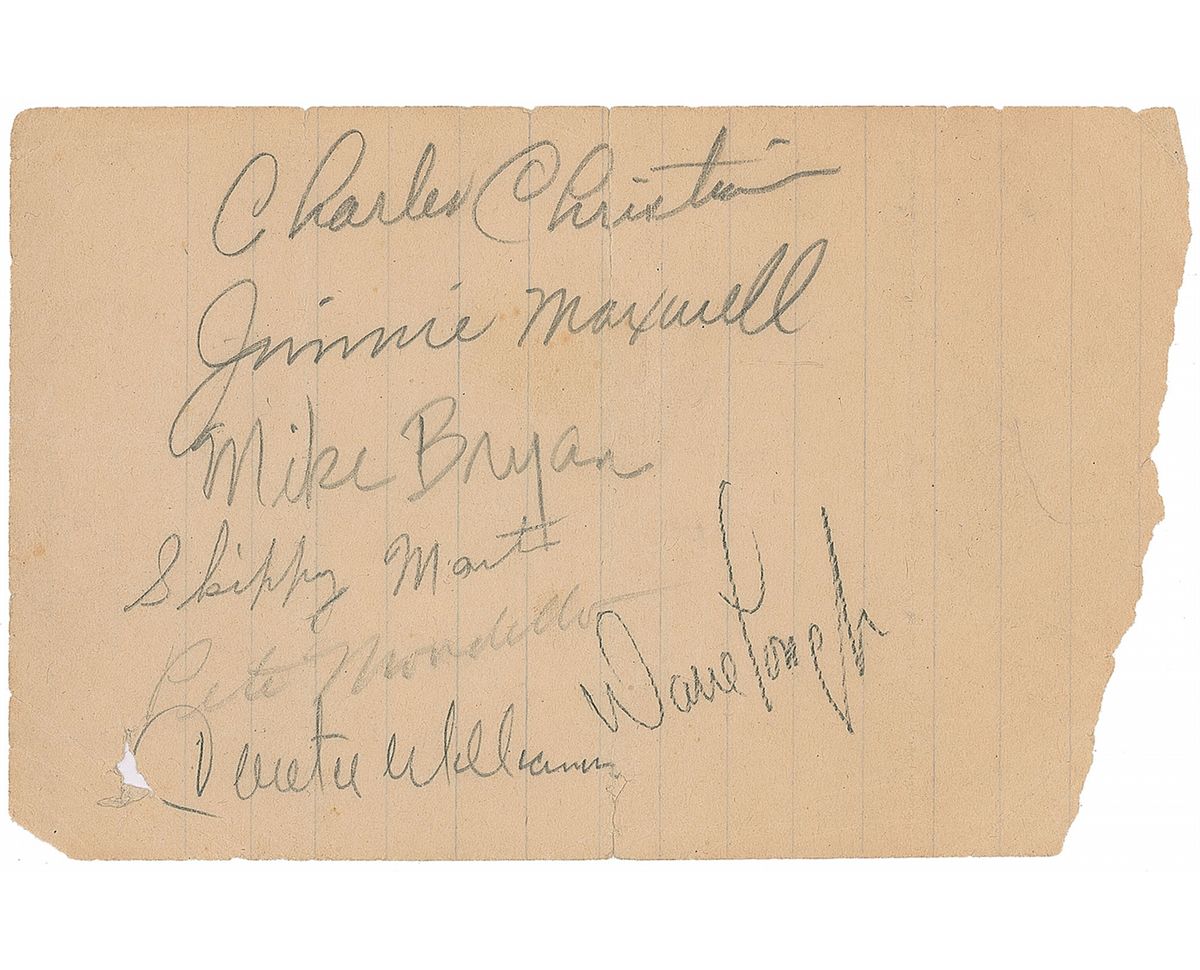 Charles Christian
Jimmie Maxwell
Mike Bryan
Skippy Mart
Pete Mondello
Dave Tough
Cootie Williams